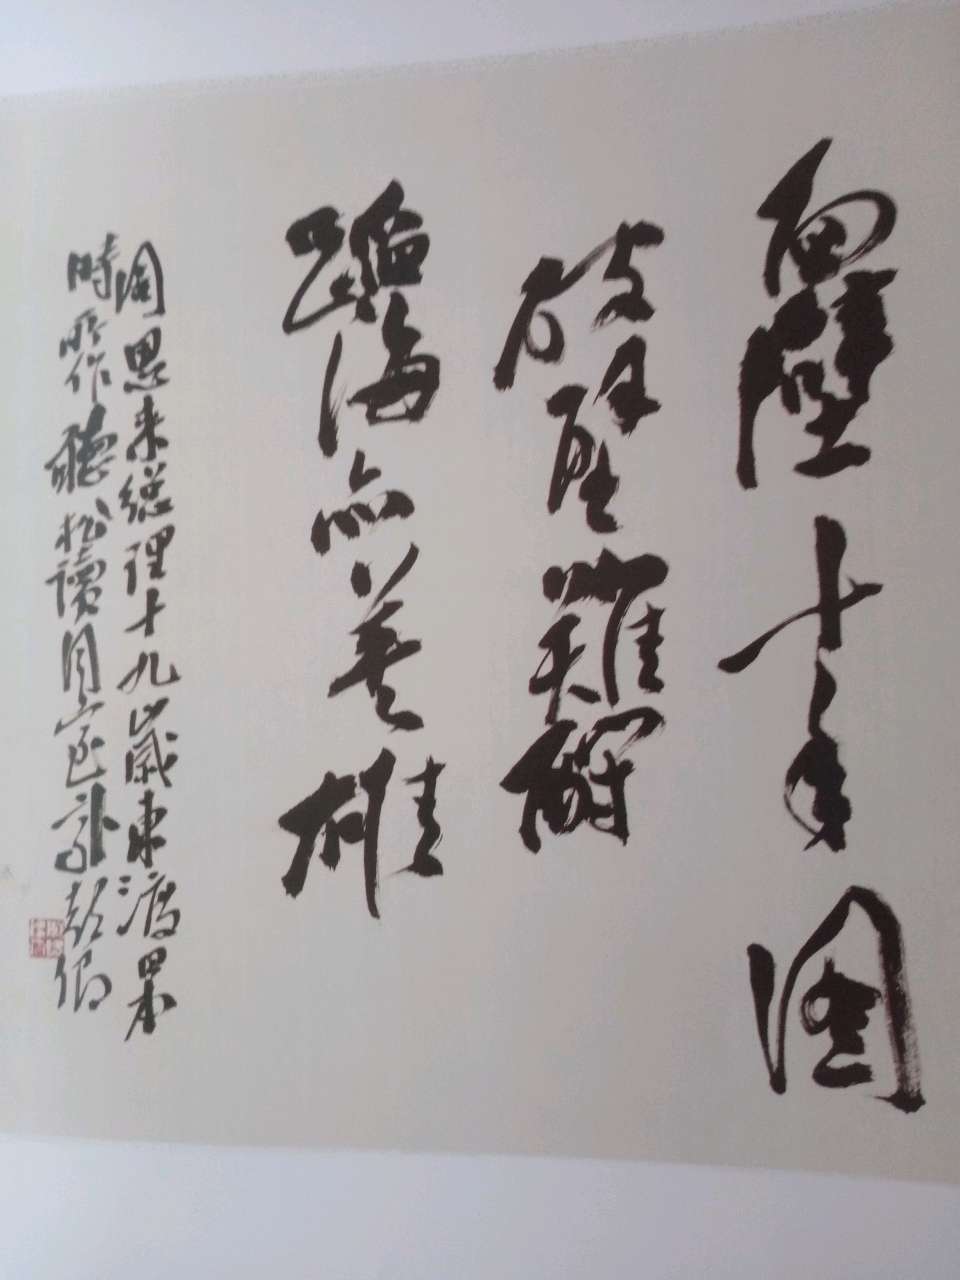 面壁十年图
破壁難酬
蹈海亦英雄
周恩来總理十九歲東渡日本
時所作聽松讀月